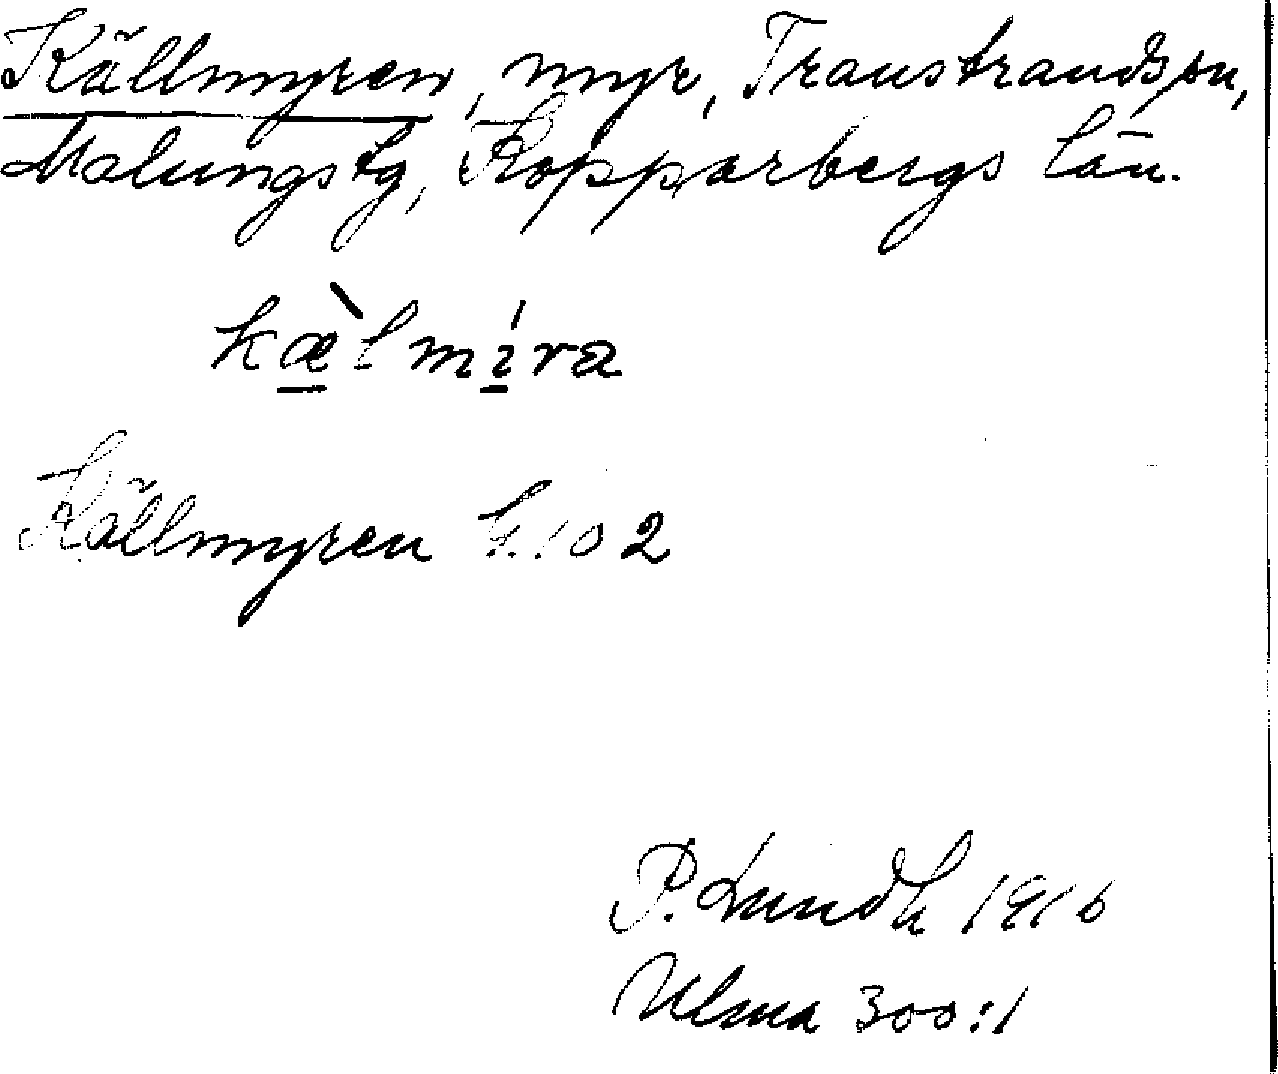 Källmyren, myr, Transtrands sn,
Malungs tg, Kopparbergs län.
kæ̀lmíra
Källmyren h. 102
P. Lundh 1916
Ulma 300:1